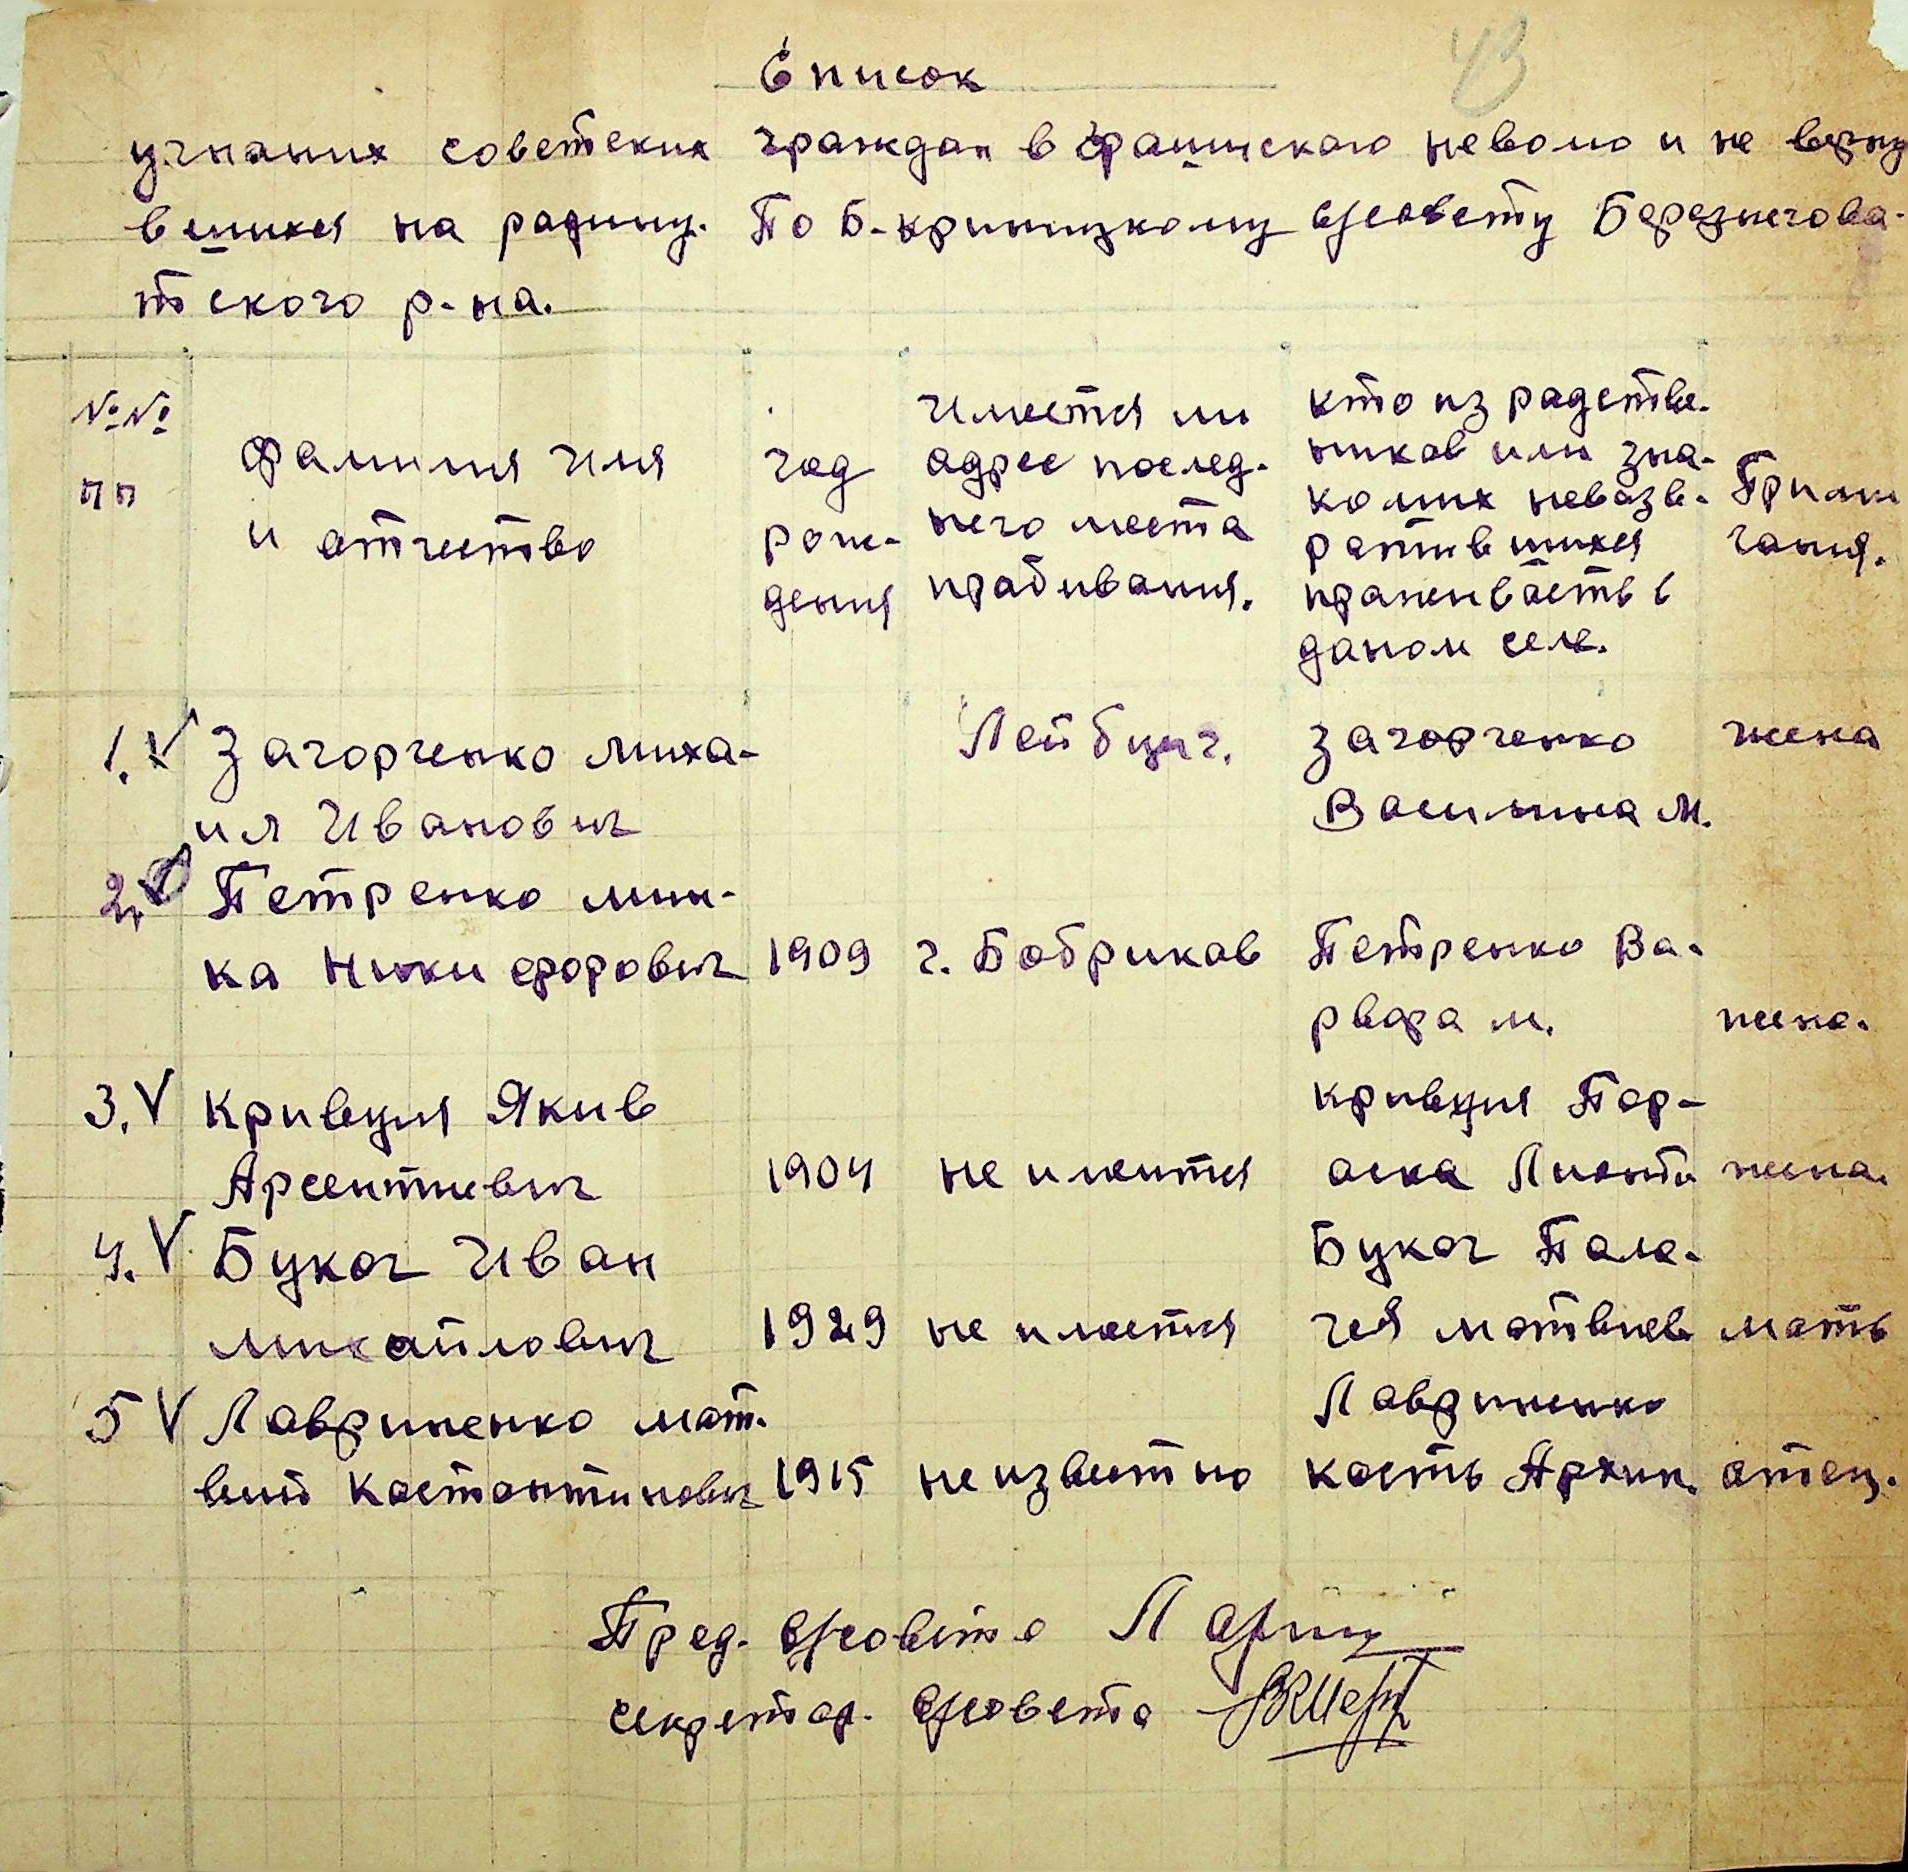 43
Список
угнаних советских граждан в фашискаю неволю и не верну
вшихся на радину. По Б-криницкому с/совету Березнегова-
тского р-на.
№№ пп
фамилия Имя и отчество
год рож- дения
Имеется ли адрес послед- него места прабивания.
кто из радстве- ников или зна- комих невазв- ратившихся праживаеть в даном селе.
Приме чания.
1. V Загорченко Миха- ил Иванович
Лейбциг.
Загорченко Василина М.
жена
2. V Петренко мин- ка Никифорович
1909
г. Бобриков
Петренко Ва- рвара м.
жена.
3. V Кривция Якив Арсентиевич
1904
не имеится
кривция Пар- аска Лионти
жена.
4. V Букач Иван михайлович
1929
не имеется
Букач Пала- гея матвиев
мать
5 V Лавриненко мат- вий Костантинович
1915
не известно
Лавриненко кость Архип.
отец.
Пред. с/совета
секретар. с/совета